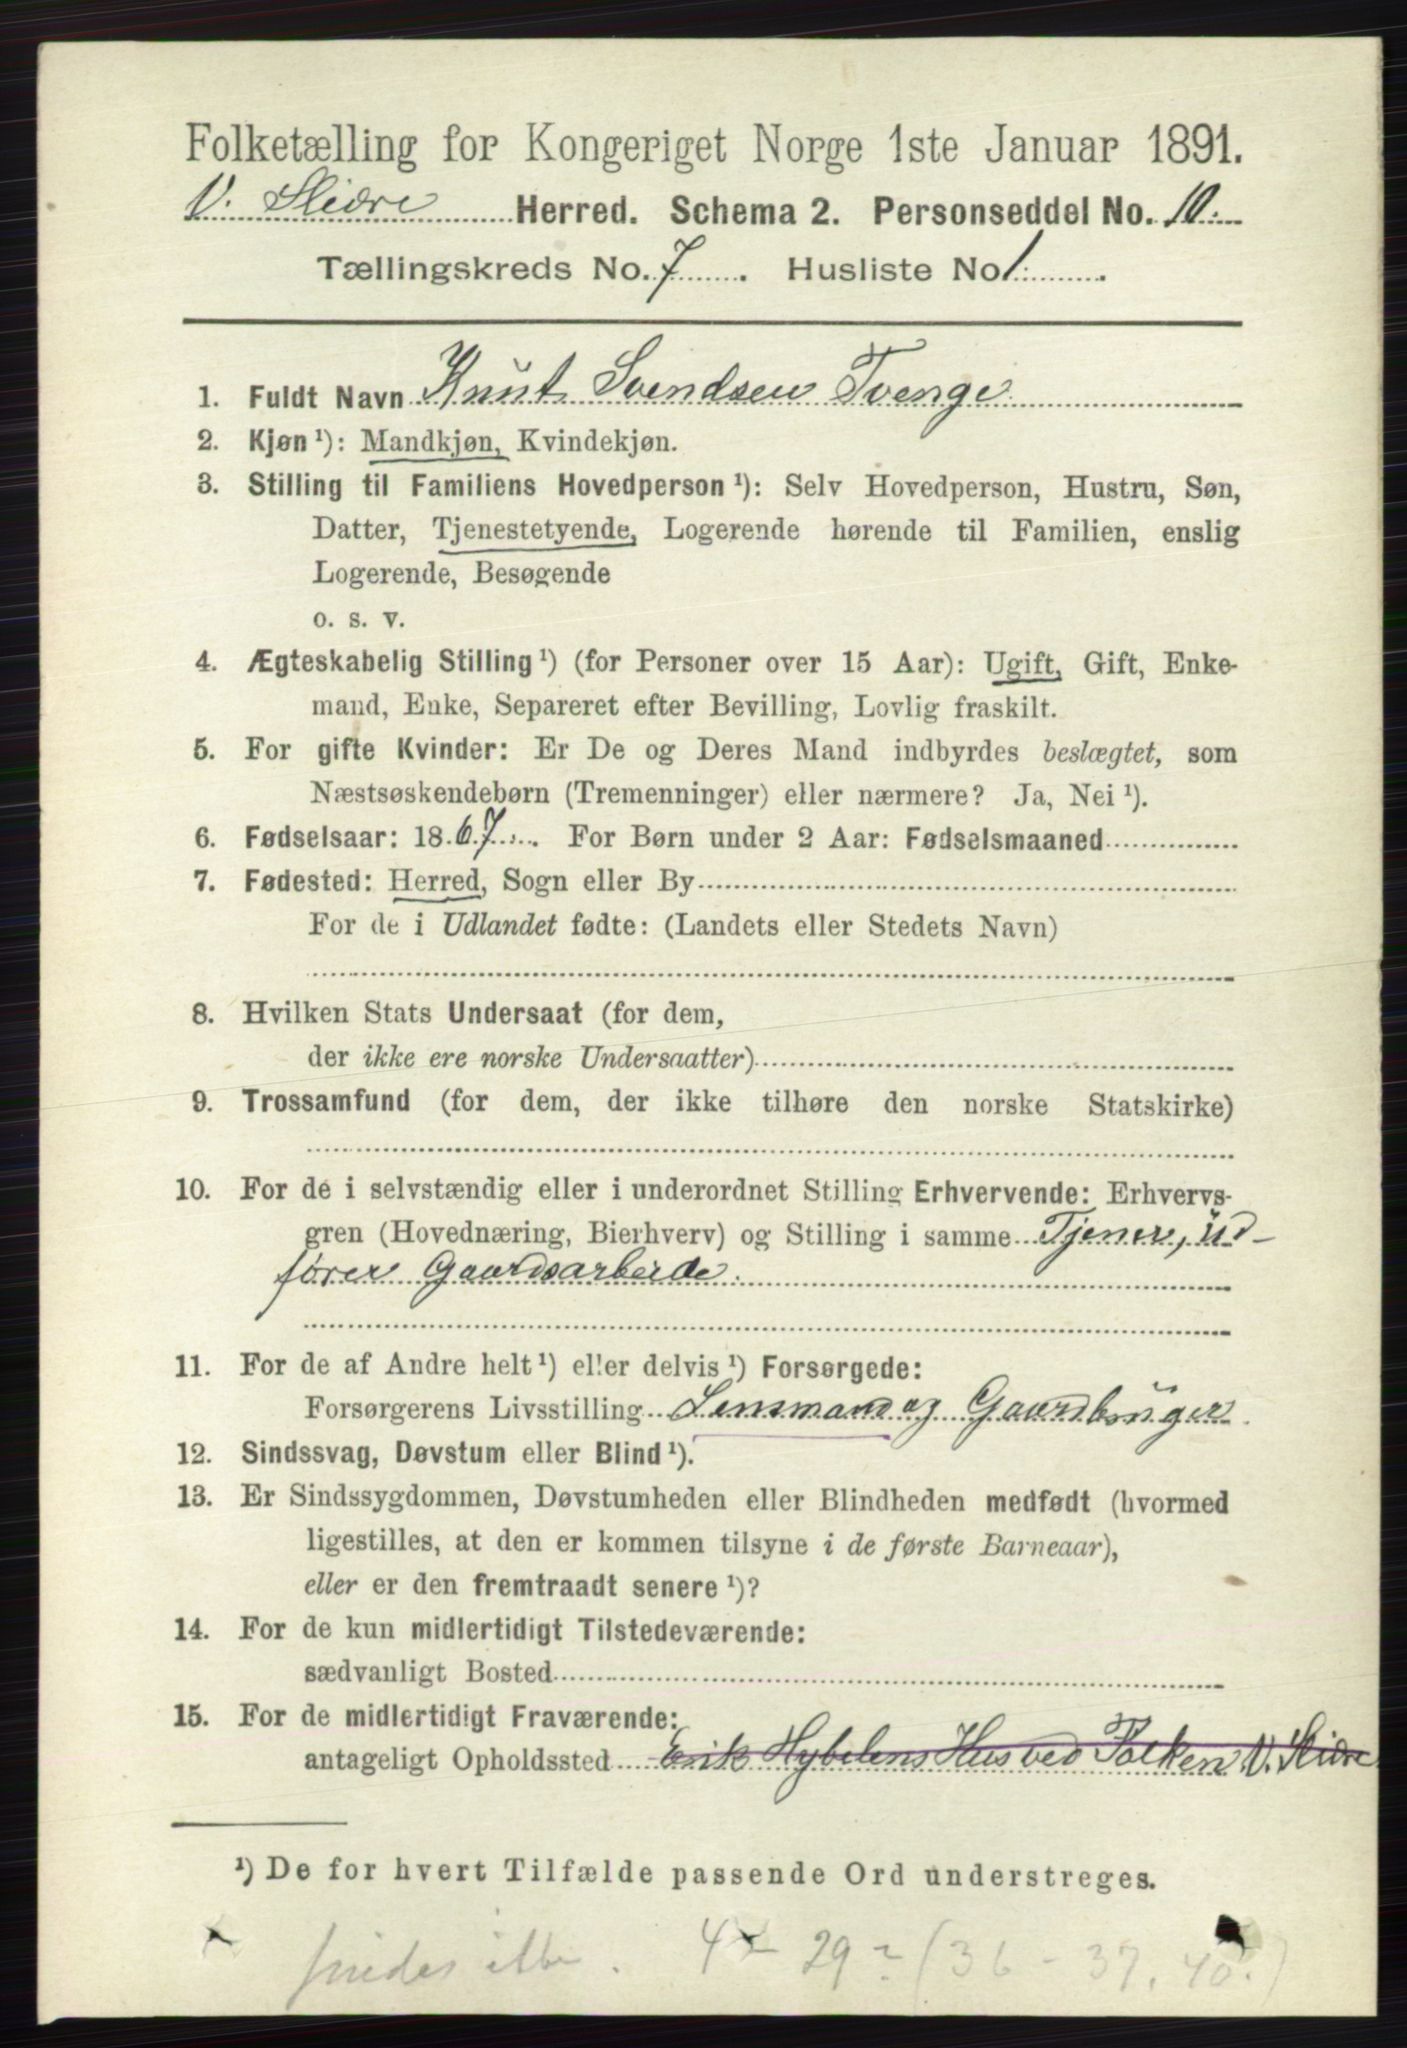 Folketælling for Kongeriget Norge 1ste Januar 1891.
V. Slidre Herred. Schema 2. Personseddel No. 10.
Tællingskreds No. 7. Husliste No 1.
1. Fuldt Navn Knut Svendsen Tvenge
2. Kjøn ¹): Mandkjøn, Kvindekjøn.
3. Stilling til Familiens Hovedperson ¹): Selv Hovedperson, Hustru, Søn,
Datter, Tjenestetyende, Logerende hørende til Familien, enslig
Logerende, Besøgende
o. s. v.
4. Ægteskabelig Stilling ¹) (for Personer over 15 Aar): Ugift, Gift, Enke-
mand, Enke, Separeret efter Bevilling, Lovlig fraskilt.
5. For gifte Kvinder: Er De og Deres Mand indbyrdes beslægtet, som
Næstsøskendebørn (Tremenninger) eller nærmere? Ja, Nei ¹).
6. Fødselsaar: 1867. For Børn under 2 Aar: Fødselsmaaned
7. Fødested: Herred, Sogn eller By
For de i Udlandet fødte: (Landets eller Stedets Navn)
8. Hvilken Stats Undersaat (for dem,
der ikke ere norske Undersaatter)
9. Trossamfund (for dem, der ikke tilhøre den norske Statskirke)
10. For de i selvstændig eller i underordnet Stilling Erhvervende: Erhvervs-
gren (Hovednæring, Bierhverv) og Stilling i samme Tjener, ud-
fører Gaardsarbeide.
11. For de af Andre helt ¹) eller delvis ¹) Forsørgede:
Forsørgerens Livsstilling Lensmand og Gaardbruger.
12. Sindssvag, Døvstum eller Blind ¹).
13. Er Sindssygdommen, Døvstumheden eller Blindheden medfødt (hvormed
ligestilles, at den er kommen tilsyne i de første Barneaar),
eller er den fremtraadt senere ¹)?
14. For de kun midlertidigt Tilstedeværende:
sædvanligt Bosted
15. For de midlertidigt Fraværende:
antageligt Opholdssted Erik Hybelens Hus ved Folken V. Slidre
¹) De for hvert Tilfælde passende Ord understreges.
findes ikke. 4 29 ? (36 - 37, 40?)